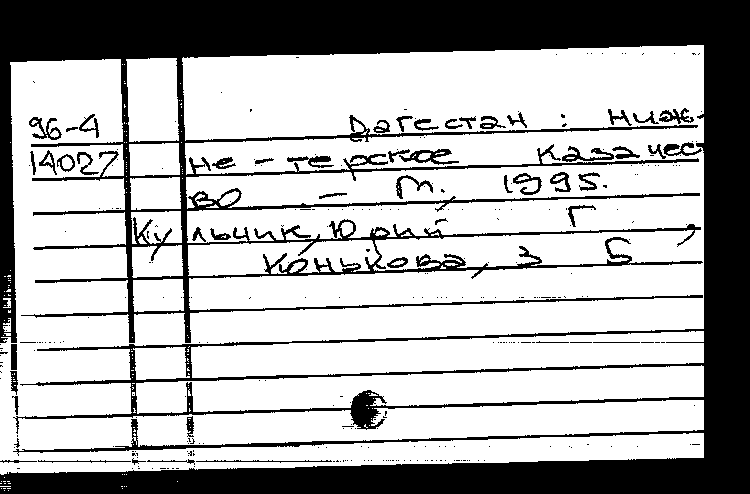 96-4 Дагестан : Ниж-
14027 не - терское казачест
во . - М., 1995.
Кульчик, Юрий Г ,
Конькова, З Б